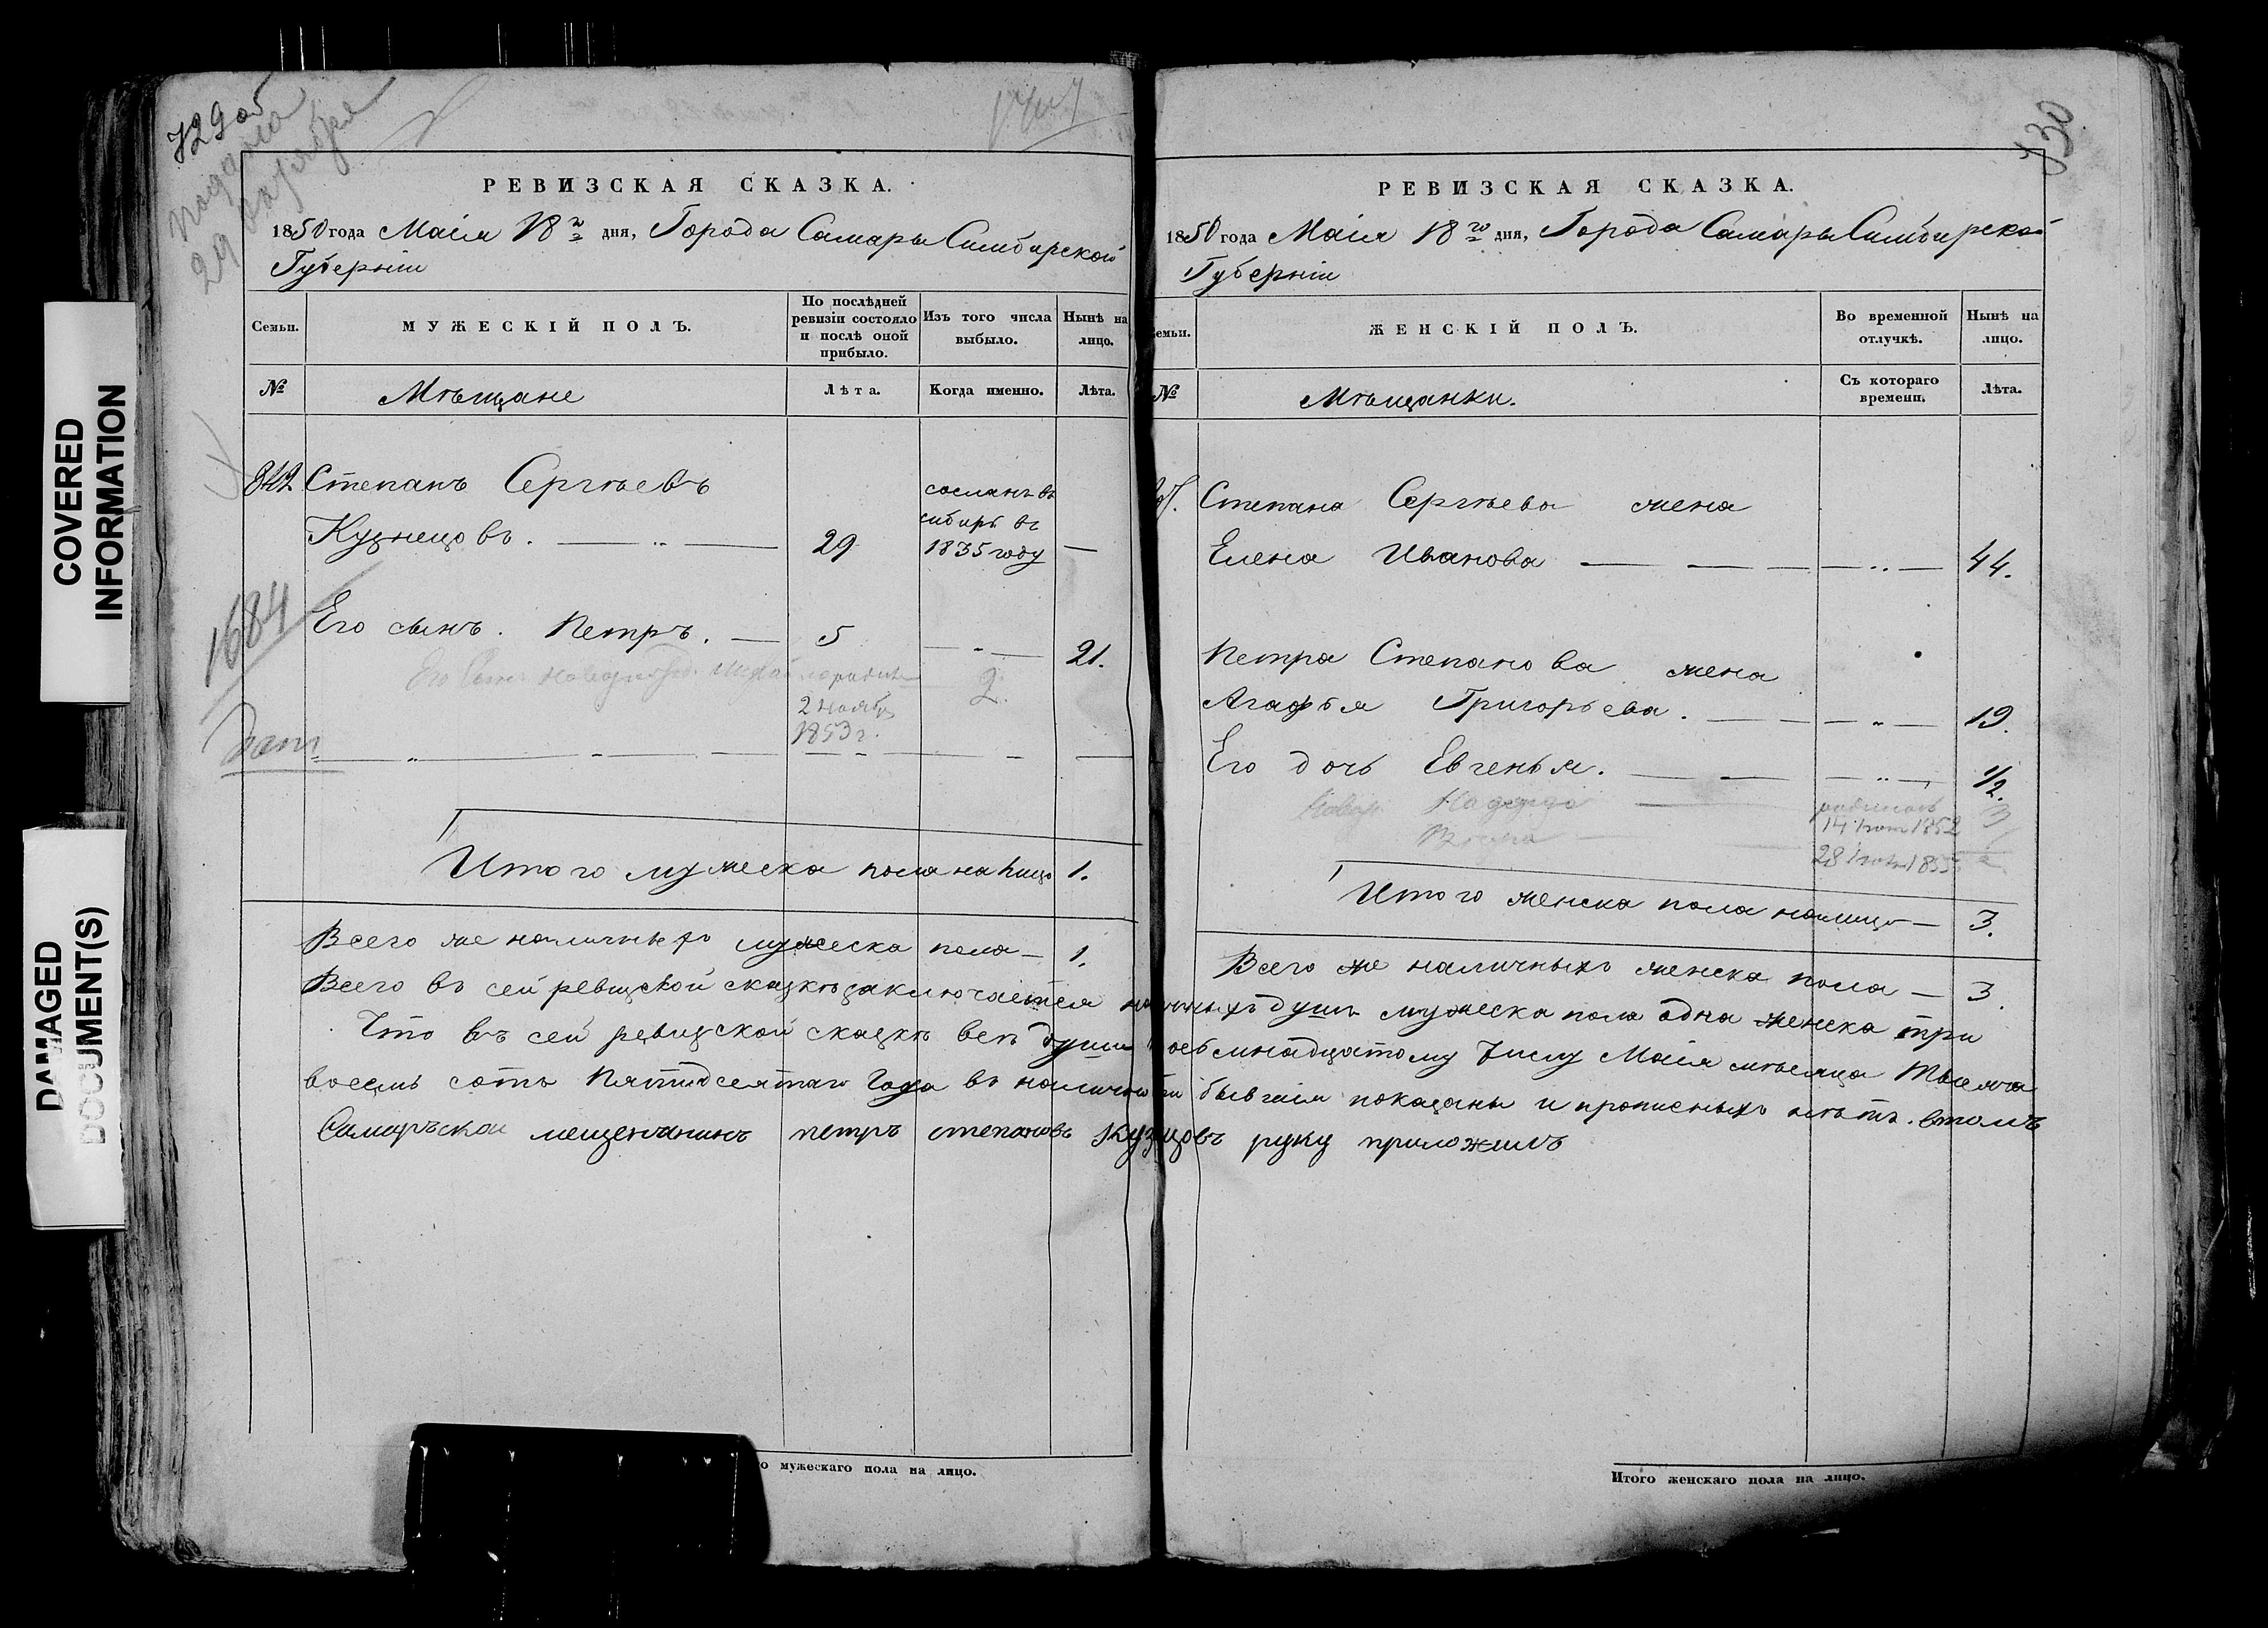 729 об
подала
29 октября
РЕВИЗСКАЯ СКАЗКА.
1850 года Маія 18го дня, Города Самары Симбирской
Губерніи
Семьи.
МУЖЕСКІЙ ПОЛЪ.
По послѣдней
ревизіи состояло
и послѣ оной
прибыло.
Изъ того числа
выбыло.
Нынѣ на
лицо.
№
Мѣщане
Лѣта.
Когда именно.
Лѣта.
Степанъ Сергѣевъ
Кузнецовъ.
29
сосланъ въ
сибирь въ
1835 году
—
1684
Его сынъ. Петръ. — 5 21.
Его сынъ новорожд. родился 2
2 ноября
1853 г.
Итого мужеска пола на лицо 1.
Всего же наличныхъ мужеска пола — 1.
730
РЕВИЗСКАЯ СКАЗКА.
1850 года Маія 18го дня, Города Самары Симбирской
Губерніи
Семьи.
ЖЕНСКІЙ ПОЛЪ.
Во временной
отлучкѣ.
Нынѣ на
лицо.
№
Мѣщанки.
Съ котораго
времени.
Лѣта.
Степана Сергѣева жена
Елена Иванова 44.
Петра Степанова жена
Агафья Григорьева. 19.
Его дочь Евгенья. 1/2.
Надежда родилась 3
14 1852
28 1855
Итого женска пола налицо — 3.
Всего же наличныхъ женска пола — 3.
Всего въ сей ревизской сказкѣ заключается наличныхъ душъ мужеска пола одна женска три
Что въ сей ревизской сказкѣ всѣ души восьмнадцатому числу Маія мѣсяца Тысяча
восемь сотъ Пятидесятаго Года въ наличности бывшія показаны и прописныхъ нѣтъ. втомъ
Самаръской мещенанинъ петръ степановъ кузнцовъ руку приложилъ
о мужескаго пола на лицо.
Итого женскаго пола на лицо.
COVERED
INFORMATION
DAMAGED
DOCUMENT(S)